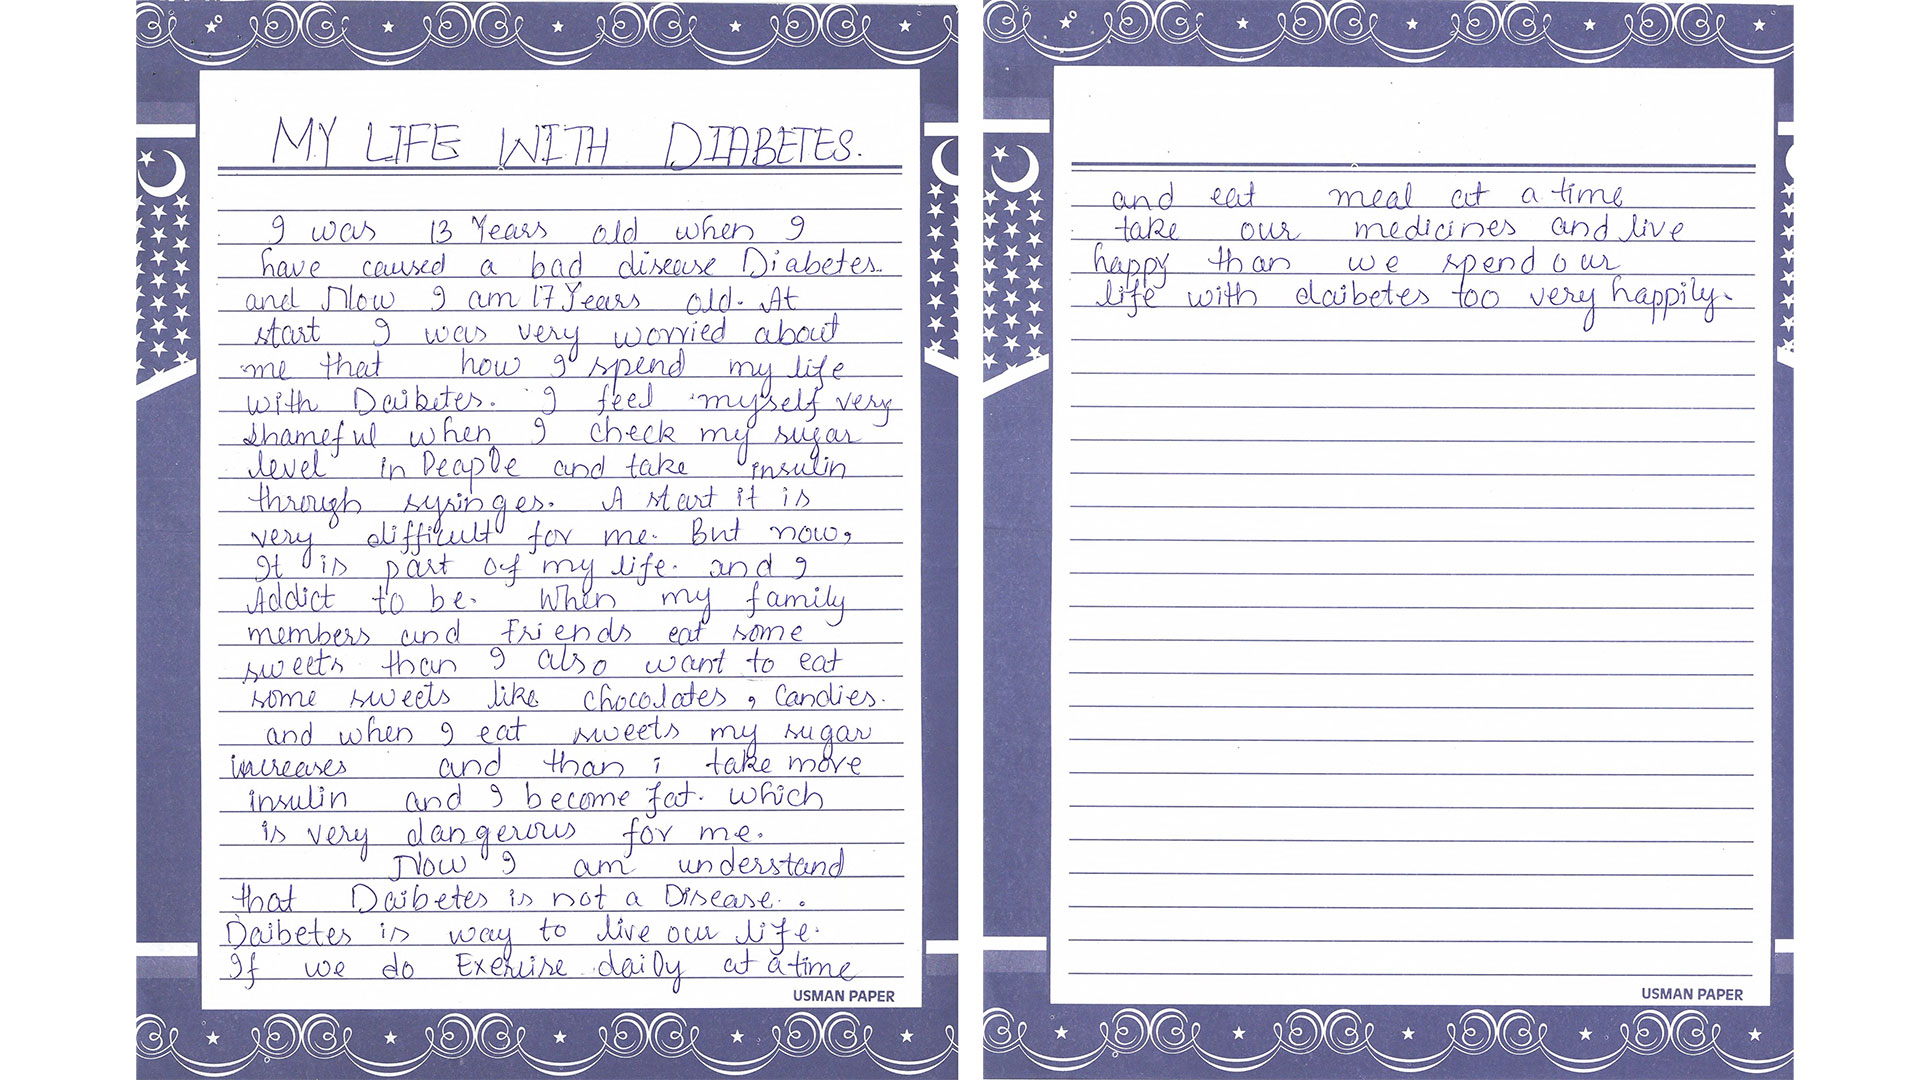 MY LIFE WITH DIABETES.
I was 13 Years old when I
have caused a bad disease Diabetes.
and Now I am 17 Years old. At
start I was very worried about
me that how I spend my life
with Daibetes. I feel myself very
shameful when I check my sugar
level in Peaple and take insulin
through syringes. A start it is
very difficult for me. But now,
It is part of my life. and I
Addict to be. When my family
members and friends eat some
sweets than I also want to eat
some sweets like chocolates, Candies.
and when I eat sweets my sugar
increases and than i take more
insulin and I become fat. which
is very dangerous for me.
Now I am understand
that Daibetes is not a Disease..
Daibetes is way to live our life.
If we do Exercise daily at a time
USMAN PAPER
and eat meal at a time
take our medicines and live
happy than we spend our
life with daibetes too very happily.
USMAN PAPER